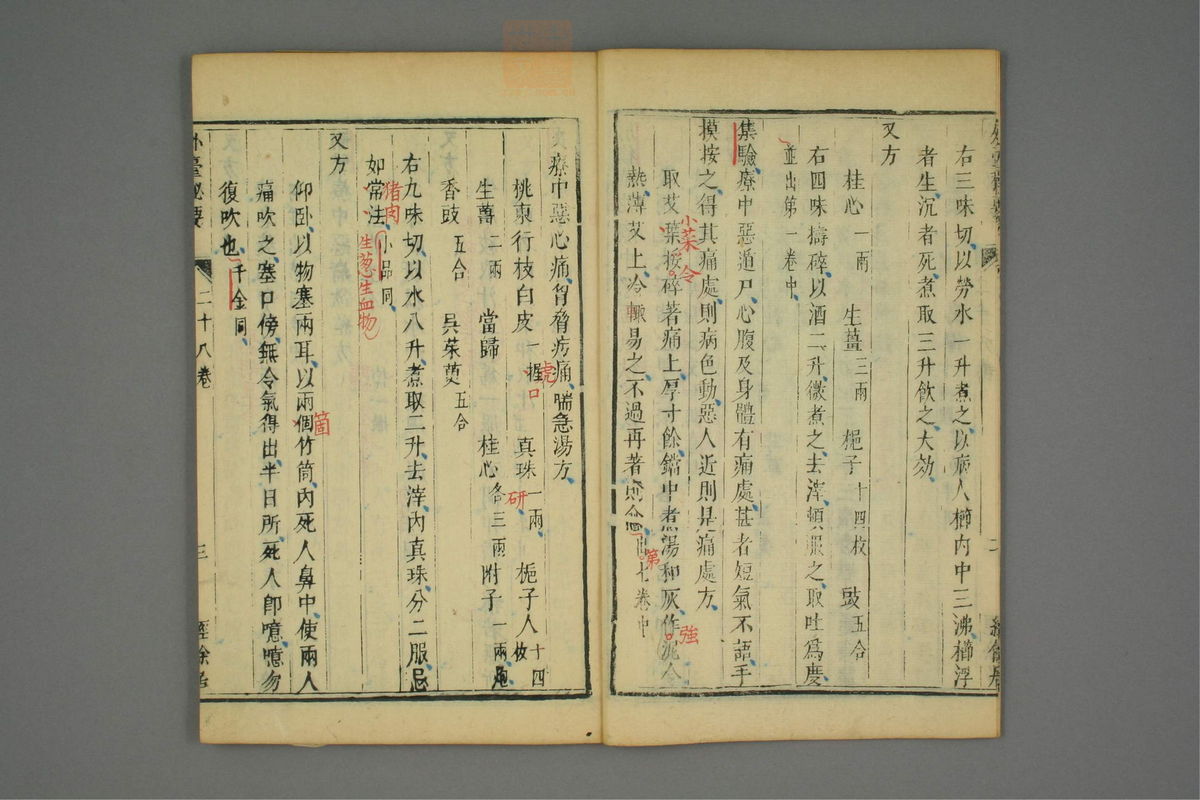 右三味切以勞水一升煮之以病人櫛內中三沸櫛浮
者生沉者死煮取三升飲之大効
又方
桂心一兩 生薑三兩 梔子十四枚 豉五合
右四味擣碎以酒二升微煮之去滓頓服之取吐爲度
並出第一卷中
集驗療中惡遁尸心腹及身體有痛處甚者短氣不語手
摸按之得其痛處則病色動惡人近則是痛處方
取艾葉挼碎著痛上厚寸餘鐺中煮湯和灰作泥令
小菜令
強
熱薄艾上冷輒易之不過再著則 卷中
第
又療中惡心痛胷脅疠痛喘急湯方
桃東行枝白皮一握 真珠一兩 梔子人十四枚
虎口
研
生薑二兩 當歸 桂心各三兩 附子一兩炮
香豉五合 吳茱萸五合
右九味切以水八升煮取二升去滓內真珠分二服忌
猪肉
如常法小品同
生葱生血物
又方
仰卧以物塞兩耳以兩個竹筒內死人鼻中使兩人
箇
痛吹之塞口傍無令氣得出半日所死人卽噫噫勿
復吹也千金同
外臺祕要 二十八卷 三 經餘居